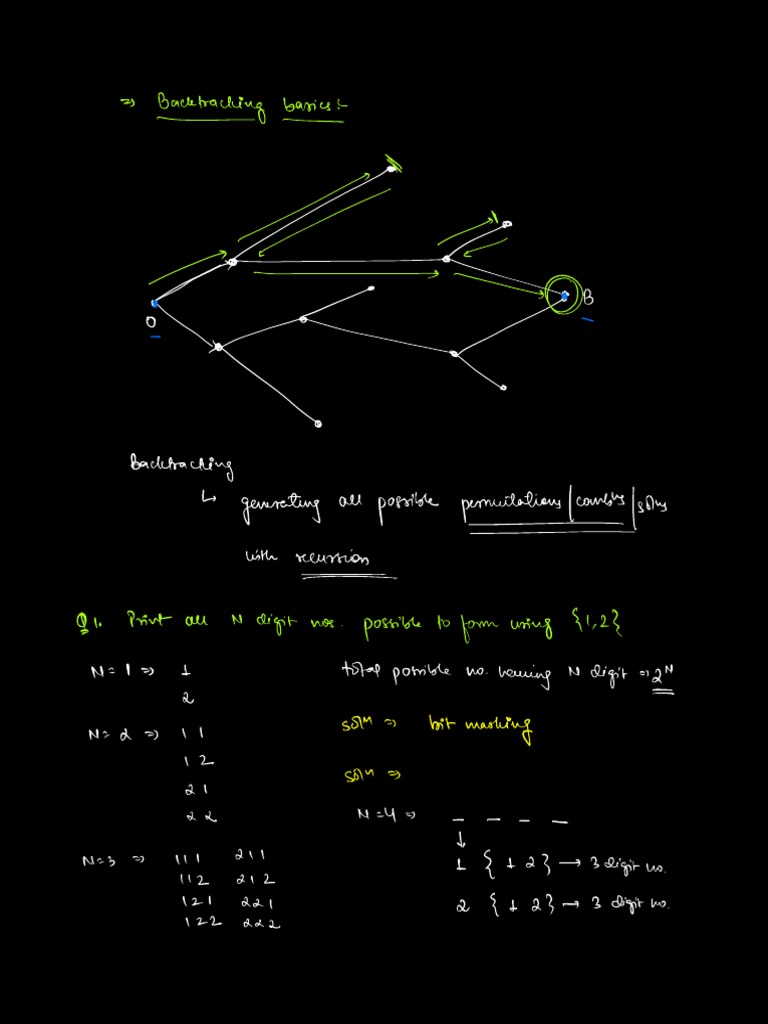 => Backtracking basics:-
O
B
Backtracking
↳ generating all possible permutations/combns/solns
with recursion
Q1. Print all N digit nos. possible to form using {1,2}
N=1 => 1
2
N=2 => 11
12
21
22
N=3 => 111 211
112 212
121 221
122 222
total possible no. having N digit => 2^N
soln => bit masking
soln =>
N=4 => _ _ _ _
↓
1 {1 2} → 3 digit no.
2 {1 2} → 3 digit no.